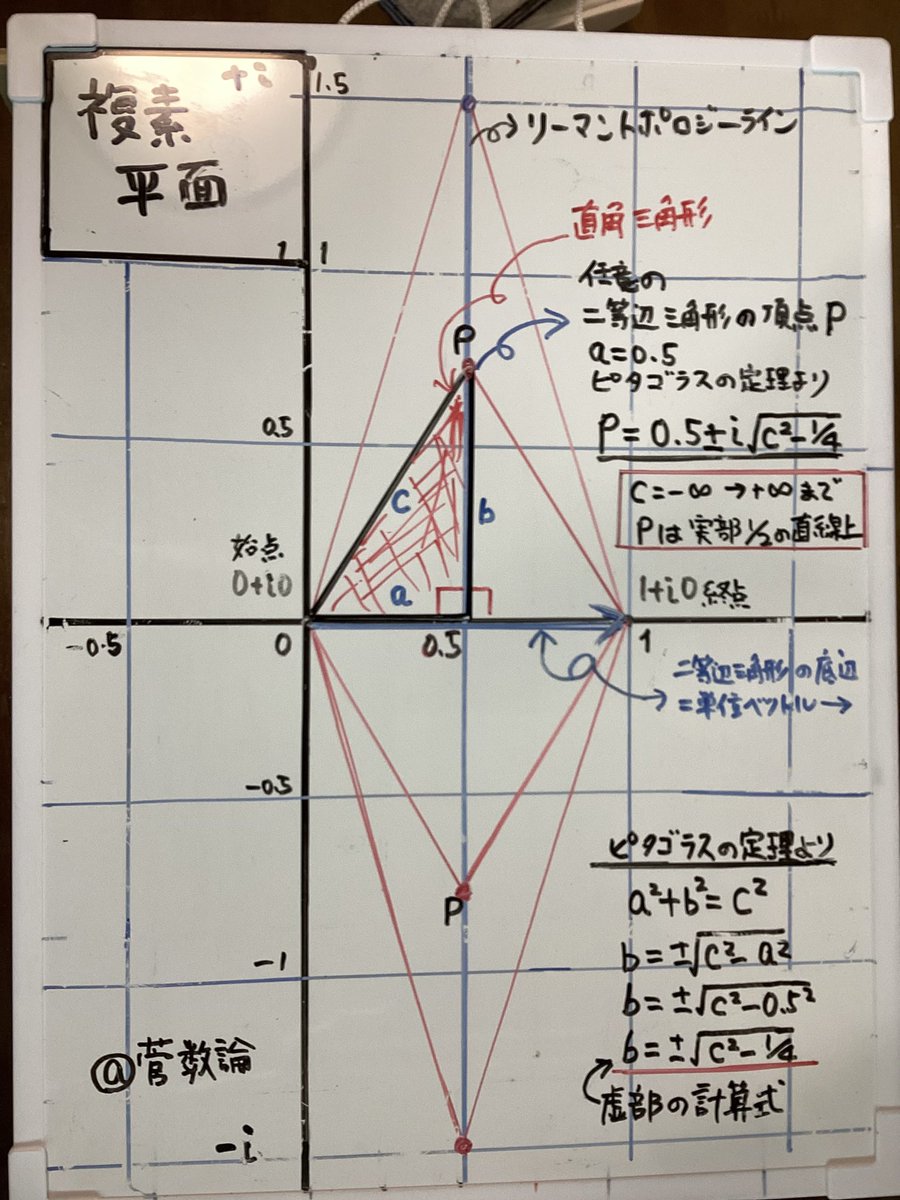 複素
平面
+i
1.5
リーマントポロジーライン
1
1
直角三角形
任意の
二等辺三角形の頂点P
a=0.5
ピタゴラスの定理より
P=0.5±i√c²-1/4
P
0.5
c=-∞→+∞まで
Pは実部1/2の直線上
c
b
a
始点
0+i0
1+i0 終点
-0.5
0
0.5
1
二等辺三角形の底辺
=単位ベクトル→
-0.5
ピタゴラスの定理より
a²+b²=c²
b=±√c²-a²
b=±√c²-0.5²
b=±√c²-1/4
虚部の計算式
P
-1
@菅数論
-i